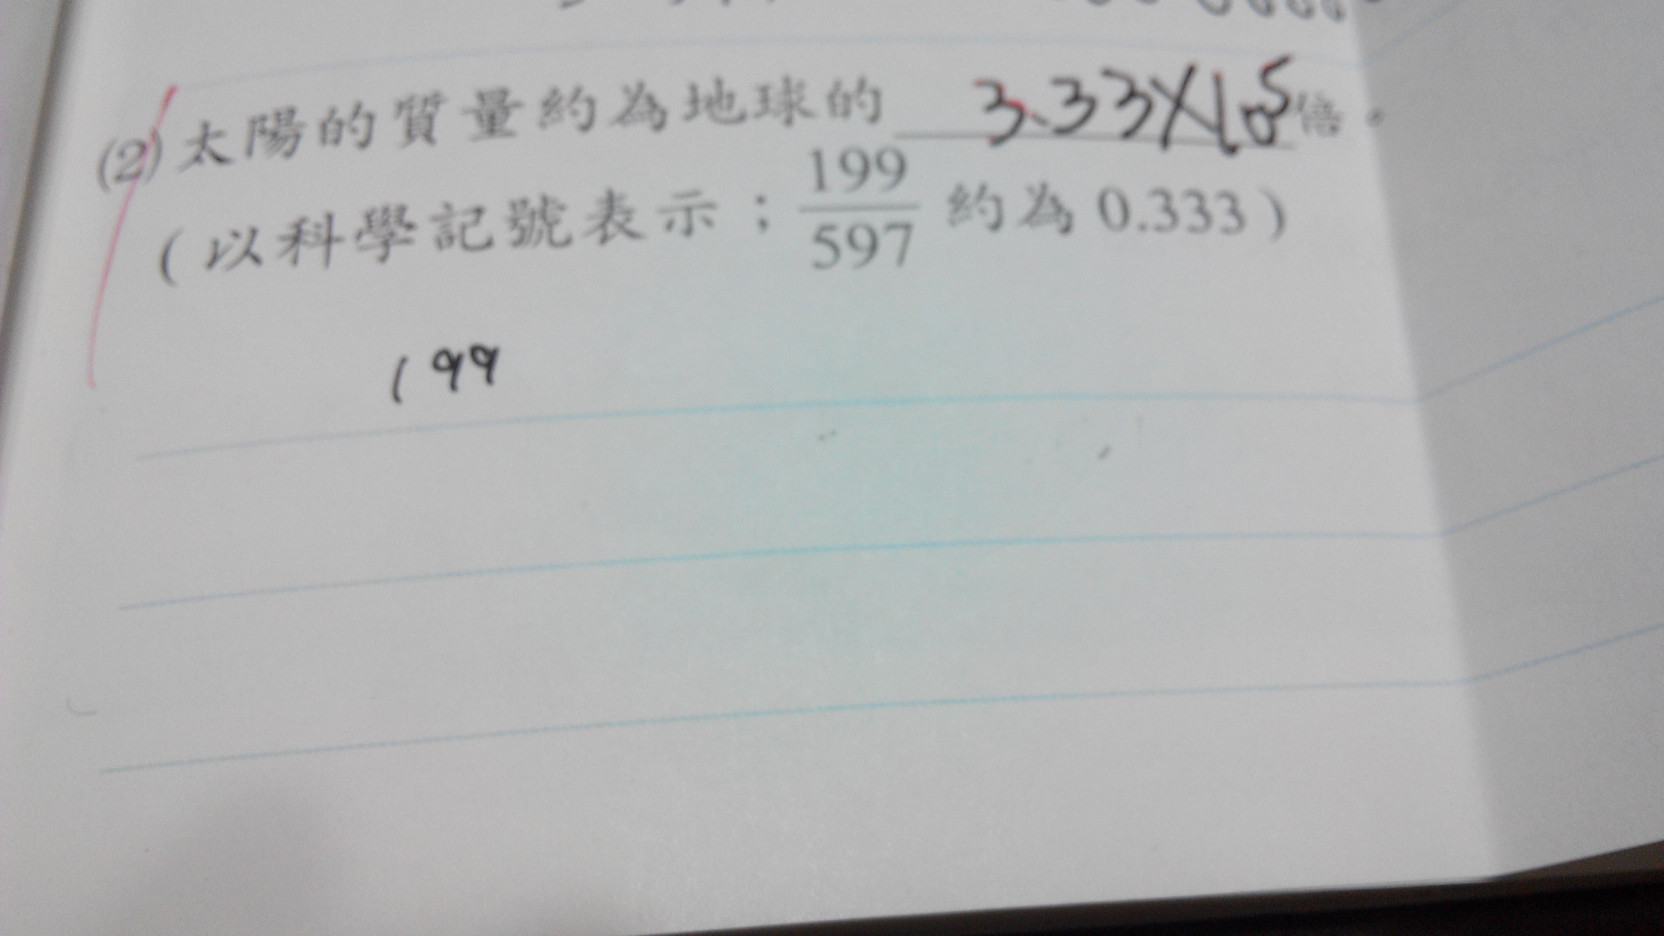 (2) 太陽的質量約為地球的 3.33×10⁵ 倍。
(以科學記號表示；199/597 約為 0.333)
199